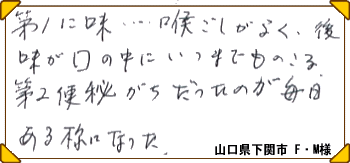 第1に味…喉ごしがよく、後
味が口の中にいつまでものこる
第2便秘がちだったのが毎日
ある様になった.
山口県下関市 F・M様